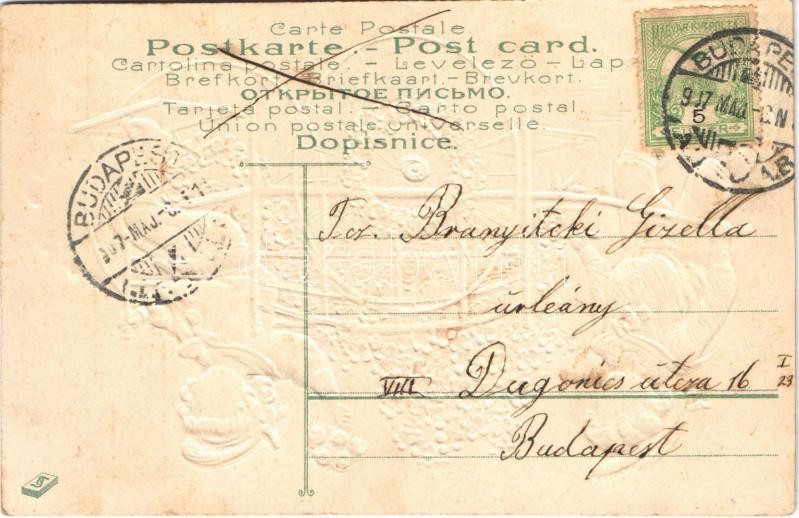 Carte Postale.
Postkarte - Post card.
Cartolina postale. - Levelező - Lap
Brefkort - Briefkaart - Brevkort.
ОТКРЫТОЕ ПИСЬМО.
Tarjeta postal. - Carto postal.
Union postale universelle.
Dopisnice.
MAGYAR KIR. POSTA
5
BUDAPE
907 MÁJ
BUDAPEST
907 MÁJ
Tcz. Branyitcki Gizella
úrleány
VIII Dugonics útcza 16 I/23
Budapest